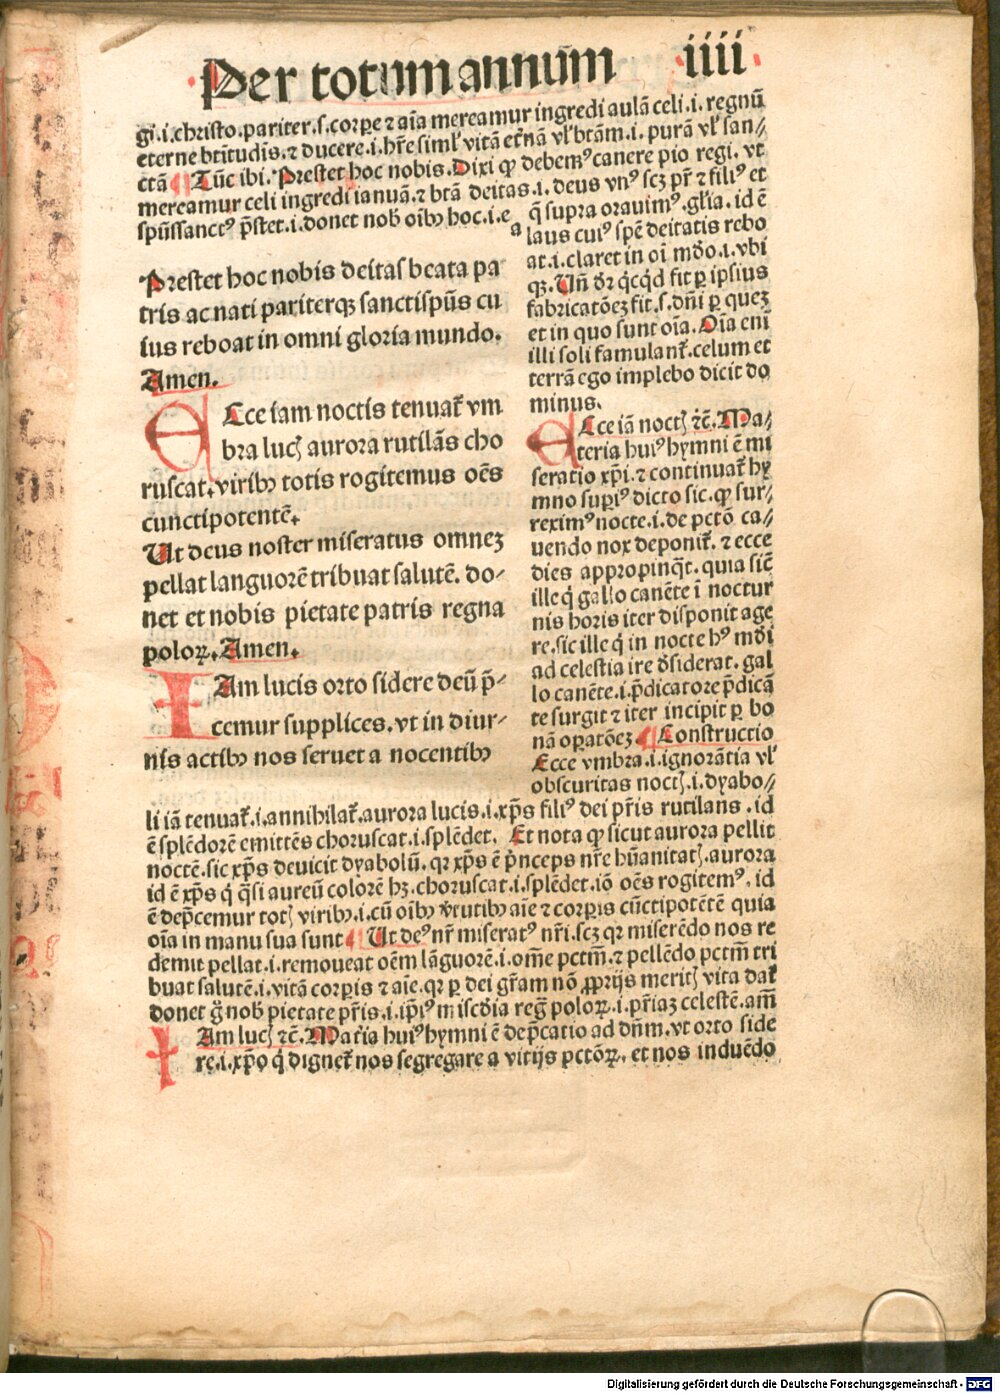 Per totum annum iiii
gi.i.christo.pariter.s.corpe ⁊ aīa mereamur ingredi aulā celi.i.regnū
eterne btītudis.⁊ ducere.i.hr̄e siml' vitā etnā vl' btām.i.purā vl' san//
ctā ¶ Tūc ibi. Prestet hoc nobis. Dixi ꝙ debemꝰ canere pio regi. vt
mereamur celi ingredi ianuā.⁊ btā deitas.i.deus vnꝰ scꝫ pr̄ ⁊ filiꝰ et
spūssanctꝰ p̄stet.i.donet nob oībꝫ hoc.i.e
Prestet hoc nobis deitas beata pa
tris ac nati pariterqꝫ sanctispūs cu
ius reboat in omni gloria mundo.
Amen.
Ecce iam noctis tenuat᷑ vm
bra lucꝭ aurora rutilās cho
ruscat.viribꝫ totis rogitemus oēs
cunctipotentē.
Ut deus noster miseratus omneꝫ
pellat languorē tribuat salutē. do-
net et nobis pietate patris regna
poloꝝ. Amen.
Iam lucis orto sidere deū p̄-
cemur supplices.vt in diur-
nis actibꝫ nos seruet a nocentibꝫ
a
q̄ supra orauimꝰ.gl'ia. id ē
laus cuiꝰ spē deitatis rebo
at.i.claret in oī mūdo.i.vbi
qꝫ. Uñ dr̄ qͥcqͥd fit ꝑ ipsius
fabricatōeꝫ fit.s.dñi ꝑ queꝫ
et in quo sunt oīa. Oīa enī
illi soli famulant᷑.celum et
terrā ego implebo dicit do
minus.
Ecce iā noctꝭ ⁊c̄. Ma//
teria huiꝰ hymni ē mi
seratio xp̄i.⁊ continuat᷑ hy
mno supiꝰ dicto sic.ꝙ sur//
reximꝰ nocte.i.de pctō ca//
uendo nox deponit᷑.⁊ ecce
dies appropinqͣt. quia sic̄
ille qͥ gallo canēte ī noctur
nis horis iter disponit age
re.sic ille qͥ in nocte hꝰ mūdi
ad celestia ire d̄siderat. gal
lo canēte.i.p̄dicatore p̄dicā
te surgit ⁊ iter incipit ꝑ bo
nā opatōeꝫ ¶ Constructio
Ecce vmbra.i.ignorātia vl'
obscuritas noctꝭ.i.dyabo//
li iā tenuat᷑.i.annihilat᷑.aurora lucis.i.xp̄s filiꝰ dei pr̄is rutilans . id
ē splēdorē emittēs choruscat.i.splēdet. Et nota ꝙ sicut aurora pellit
noctē.sic xp̄s deuicit dyabolū. qr xp̄s ē pͥnceps nr̄e hūanitatꝭ.aurora
id ē xp̄s qͥ qͣsi aureū colorē hꝫ.choruscat.i.splēdet.iō oēs rogitemꝰ. id
ē dep̄cemur totꝭ viribꝫ.i.cū oībꝫ v̄tutibꝫ aīe ⁊ corpis cūctipotētē quia
oīa in manu sua sunt ¶ Ut deꝰ nr̄ miseratꝰ nr̄i.scꝫ qr miserēdo nos re
demit pellat.i.remoueat oēm lāguorē.i.om̄e pctm̄.⁊ pellēdo pctm̄ tri
buat salutē.i.vitā corpis ⁊ aīe.qr ꝑ dei gr̄am nō ꝓprijs meritꝭ vita dat᷑
donet ḡ nob pietate pr̄is.i.ip̄iꝰ miscd̄ia reg̅ poloꝝ.i.pr̄iaꝫ celestē.am̄
Iam lucꝭ ⁊c̄. Mat̄ia huiꝰ hymni ē dep̄catio ad dñm.vt orto side
re.i.xp̄o qͥ dignet᷑ nos segregare a vitijs pctōꝝ. et nos induēdo
Digitalisierung gefördert durch die Deutsche Forschungsgemeinschaft - DFG